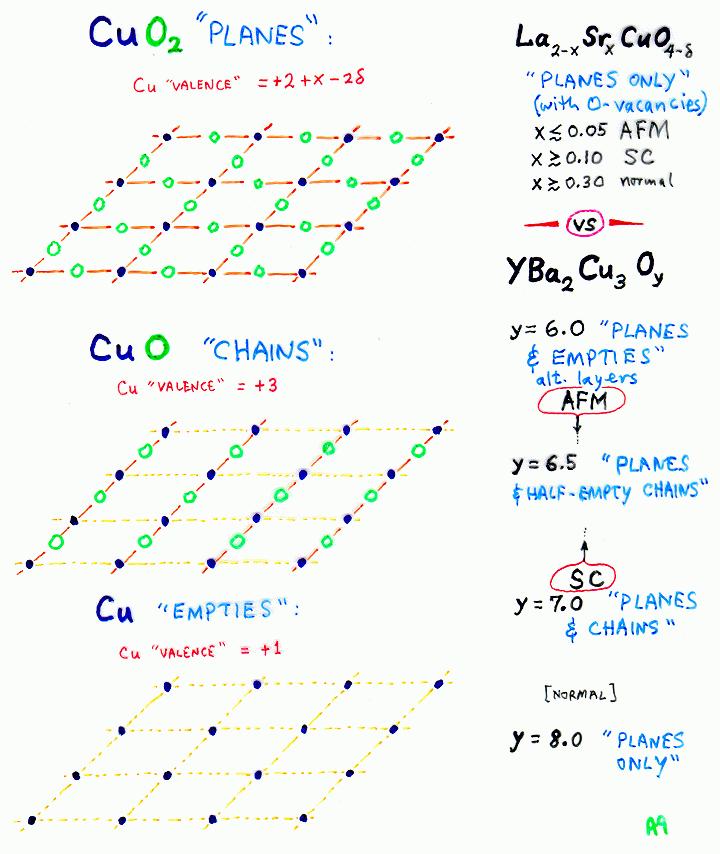 CuO₂ "PLANES":
Cu "VALENCE" = +2 + x - 2δ
CuO "CHAINS":
Cu "VALENCE" = +3
Cu "EMPTIES":
Cu "VALENCE" = +1
La₂₋ₓSrₓCuO₄₋δ
"PLANES ONLY"
(with O-vacancies)
x ≤ 0.05 AFM
x ≳ 0.10 SC
x ≳ 0.30 normal
VS
YBa₂Cu₃Oy
y = 6.0 "PLANES
& EMPTIES"
alt. layers
AFM
y = 6.5 "PLANES
& HALF-EMPTY CHAINS"
SC
y = 7.0 "PLANES
& CHAINS"
[NORMAL]
y = 8.0 "PLANES
ONLY"
A9